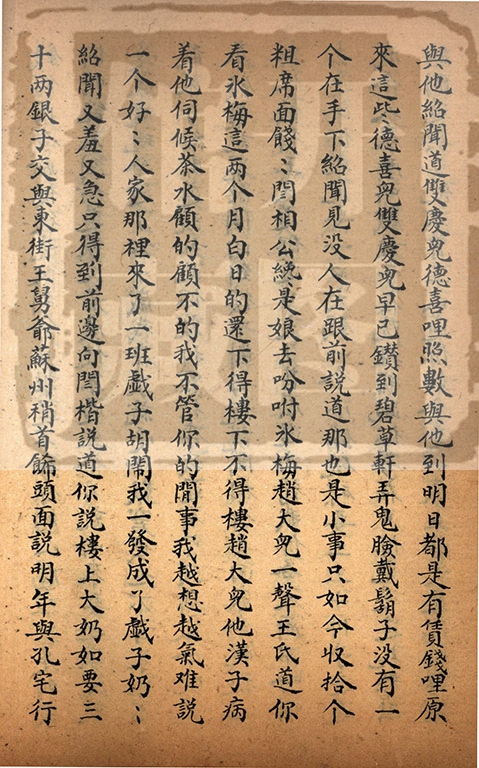 與他紹聞道雙慶兒德喜哩照數與他到明日都是有賃錢哩原
來這些德喜兒雙慶兒早已鑽到碧草軒弄鬼臉戴鬍子没有一
个在手下紹聞見没人在跟前說道那也是小事只如今収拾个
粗席面餞〻閆相公纔是娘去吩咐氷梅趙大兒一聲王氏道你
看氷梅這兩个月白日的還下得樓下不得樓趙大兒他漢子病
着他伺候茶水顧的顧不的我不管你的閒事我越想越氣难說
一个好〻人家那裡來了一班戯子胡鬧我一發成了戯子奶〻
紹聞又羞又急只得到前邊向閆楷說道你說樓上大奶如要三
十两銀子交與東街王舅爺蘇州稍首餙頭面說明年與孔宅行